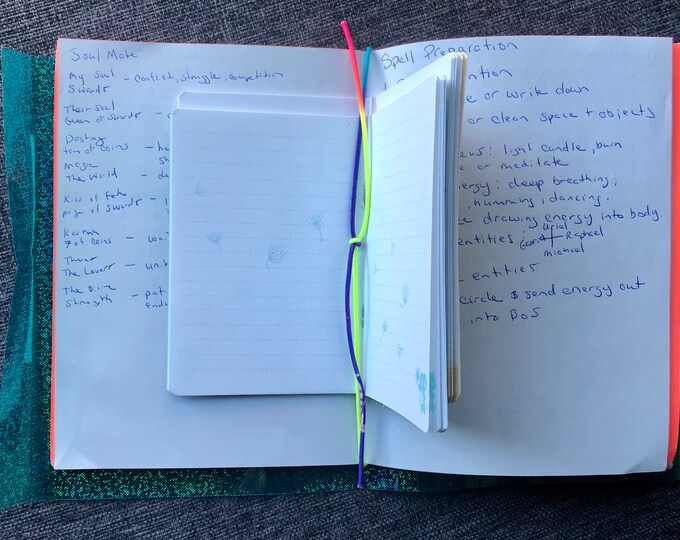 Soul Mate
My Soul — conflict, struggle, competition
5wands
Their Soul
Queen of Swords —
Destiny
ten of coins — ha
sh
Magic
The World — de
Kiss of fate
page of Swords —
Karma
7 of coins — wai
The Lovers — unit
The Divine
Strength — pat
endu
Spell Preparation
ntion
e or write down
or clean space + objects
ews: light candle, burn
e or meditate
ergy: deep breathing,
, humming, dancing.
e drawing energy into body.
entities: Urial
Raphael
michael
- entities
circle & send energy out
into BoS